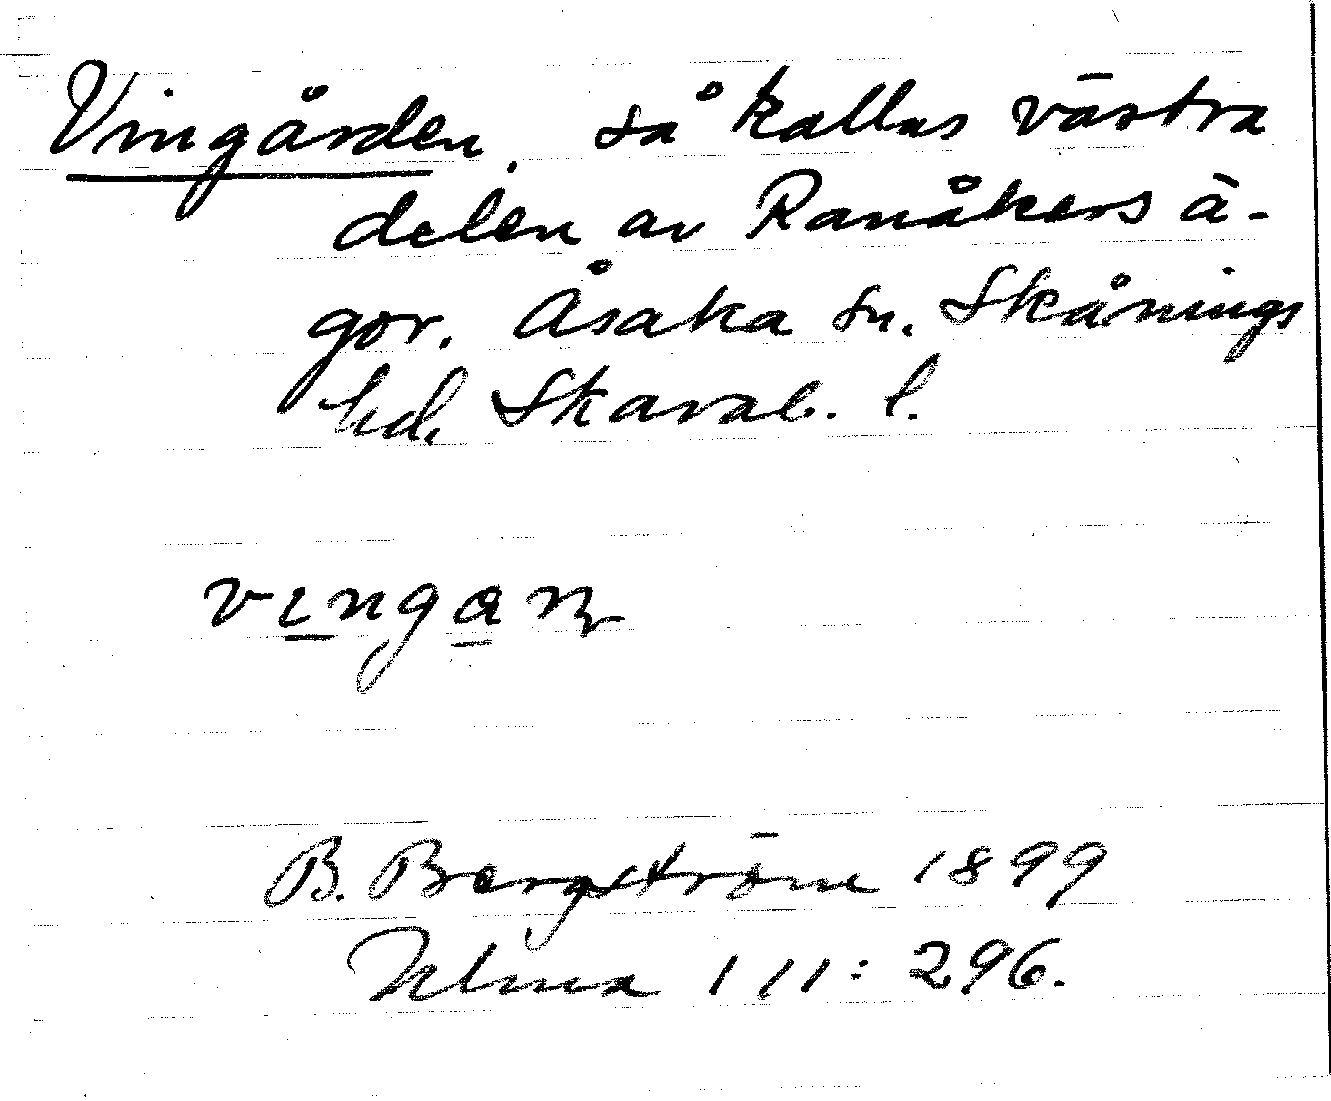 Vingården. så kallas västra
delen av Ranåkers ä-
gor. Åsaka sn. Skånings
hd. Skarab. l.
vingan
B. Bergström 1899
Ulma 111: 296.